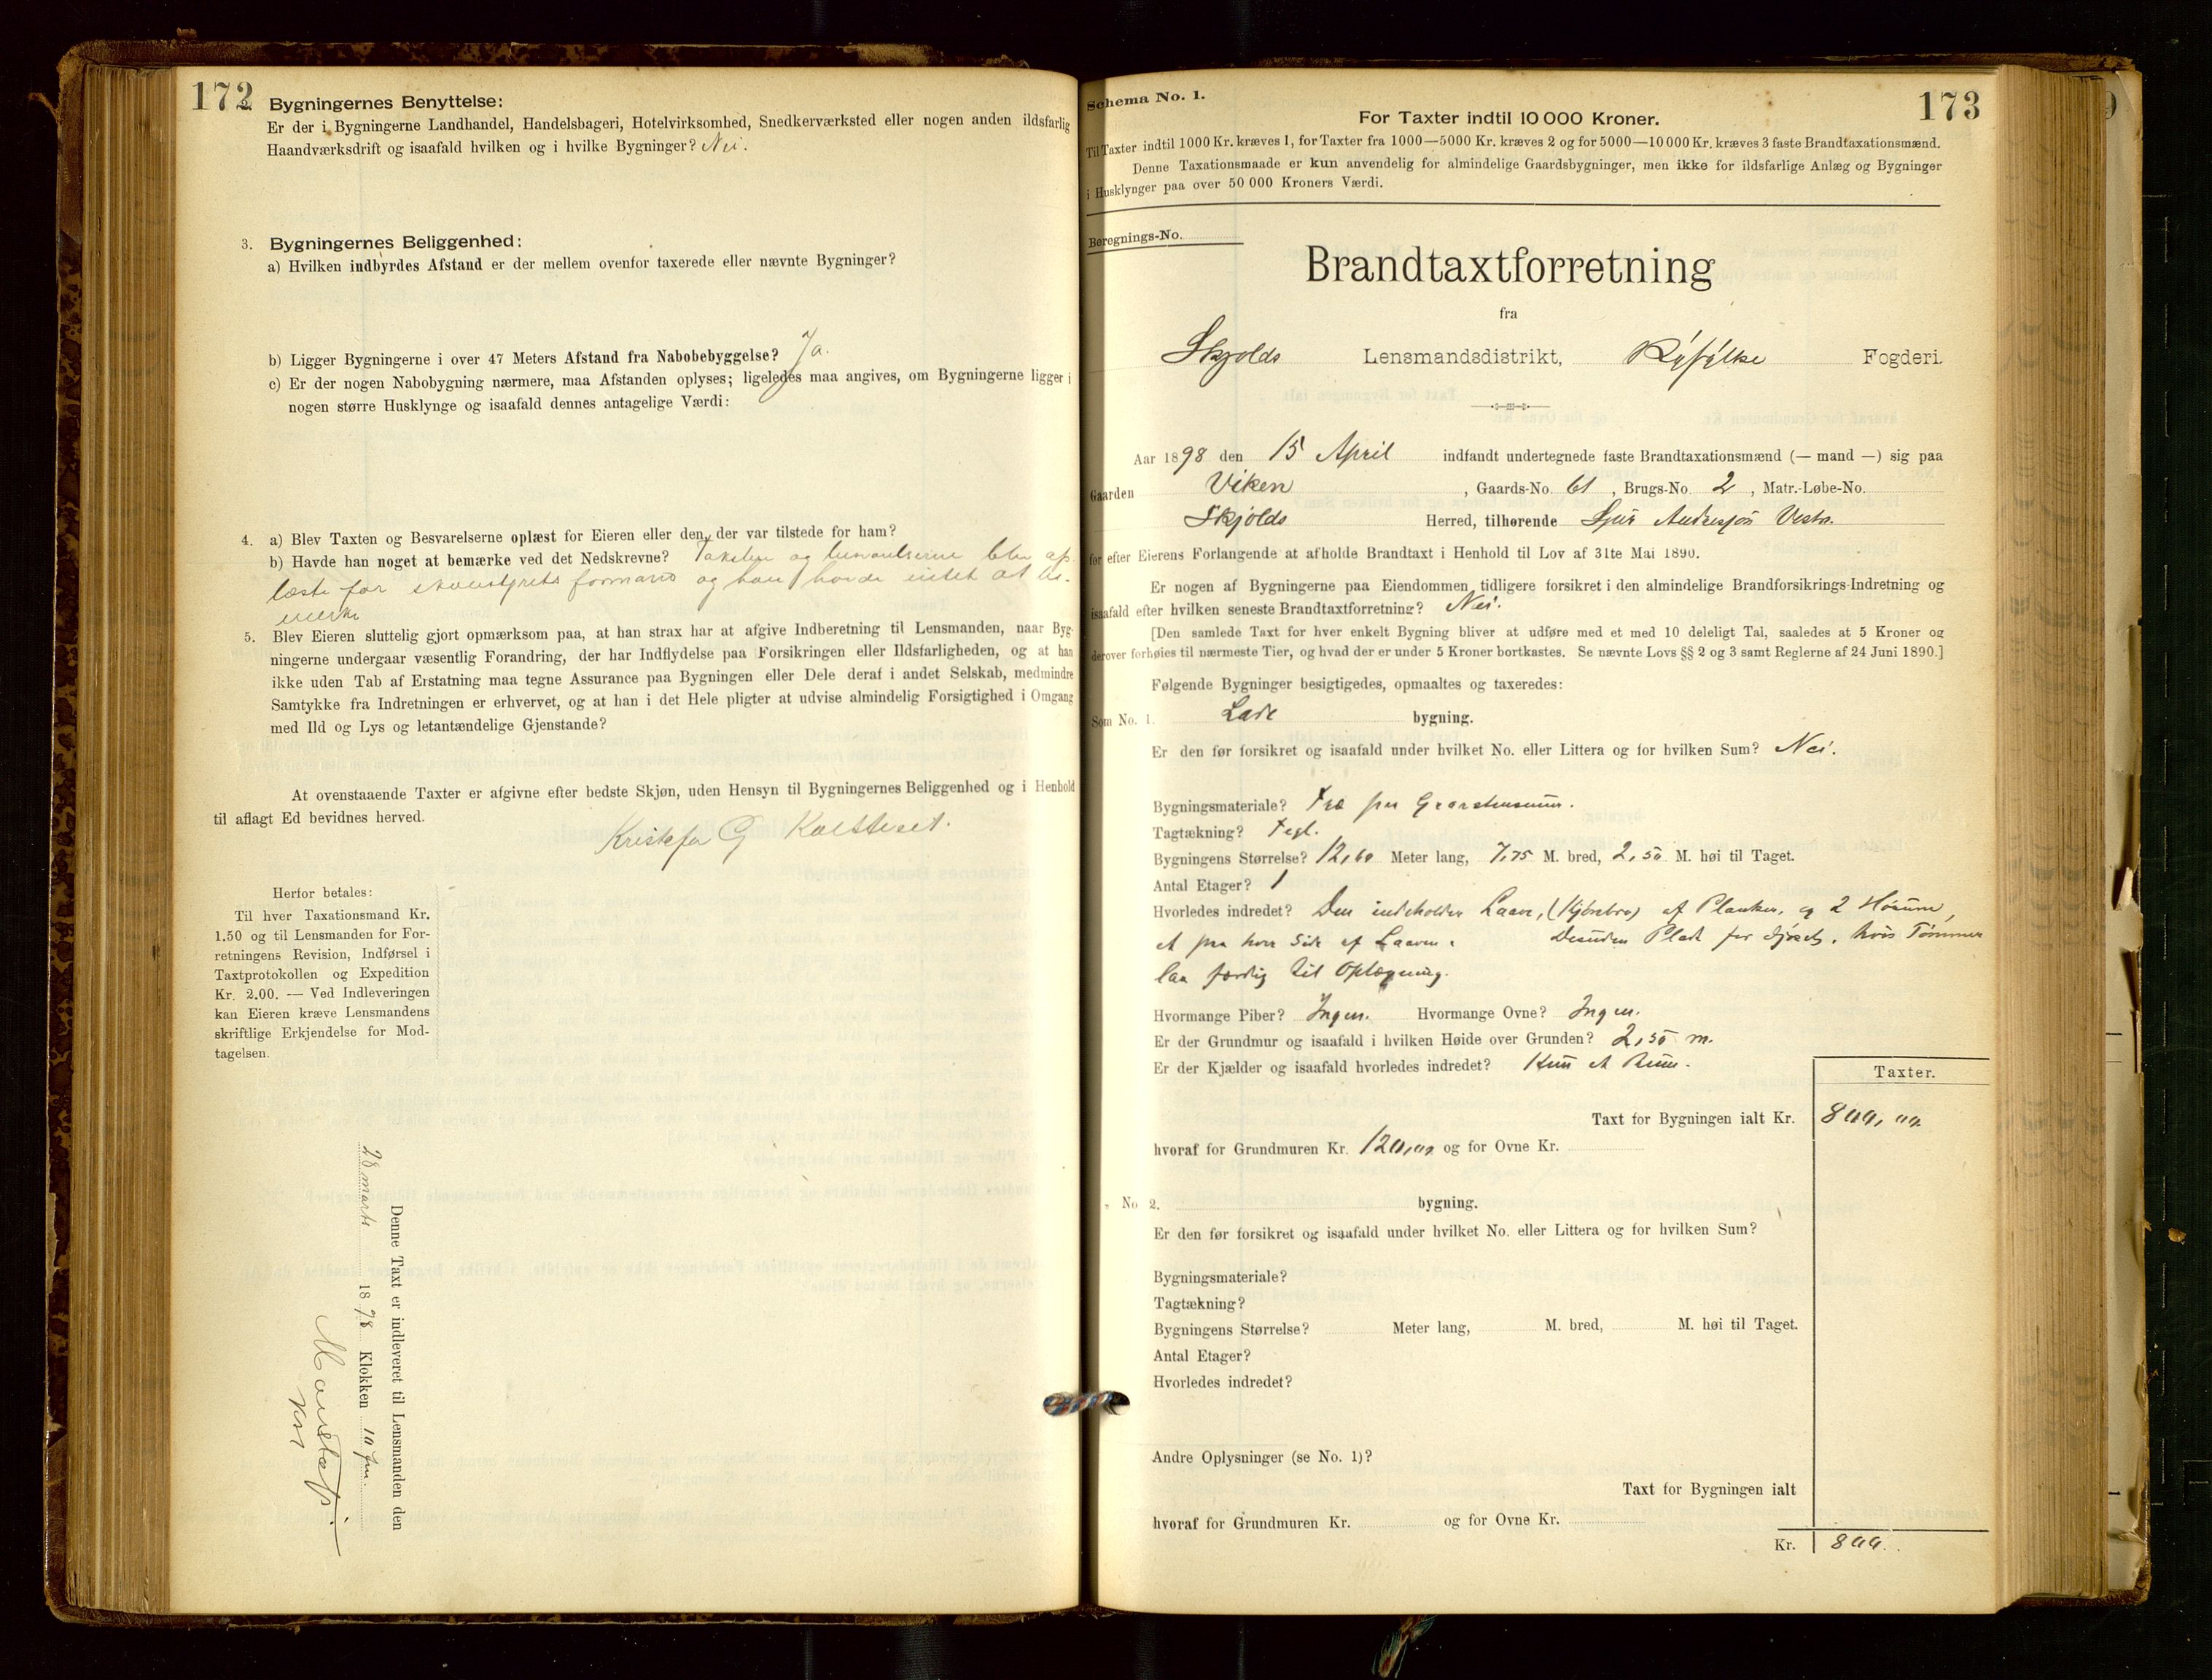 172
Bygningernes Benyttelse:
Er der i Bygningerne Landhandel, Handelsbageri, Hotelvirksomhed, Snedkerværksted eller nogen anden ildsfarlig
Haandværksdrift og isaafald hvilken og i hvilke Bygninger? Nei.
3. Bygningernes Beliggenhed:
a) Hvilken indbyrdes Afstand er der mellem ovenfor taxerede eller nævnte Bygninger?
b) Ligger Bygningerne i over 47 Meters Afstand fra Nabobebyggelse? Ja.
c) Er der nogen Nabobygning nærmere, maa Afstanden oplyses; ligeledes maa angives, om Bygningerne ligger i
nogen større Husklynge og isaafald dennes antagelige Værdi:
4. a) Blev Taxten og Besvarelserne oplæst for Eieren eller den, der var tilstede for ham?
b) Havde han noget at bemærke ved det Nedskrevne? Taksten og besvarelserne blev op
læste for formand og han havde intet at be-
merke
5. Blev Eieren sluttelig gjort opmærksom paa, at han strax har at afgive Indberetning til Lensmanden, naar Byg-
ningerne undergaar væsentlig Forandring, der har Indflydelse paa Forsikringen eller Ildsfarligheden, og at han
ikke uden Tab af Erstatning maa tegne Assurance paa Bygningen eller Dele deraf i andet Selskab, medmindre
Samtykke fra Indretningen er erhvervet, og at han i det Hele pligter at udvise almindelig Forsigtighed i Omgang
med Ild og Lys og letantændelige Gjenstande?
At ovenstaaende Taxter er afgivne efter bedste Skjøn, uden Hensyn til Bygningernes Beliggenhed og i Henhold
til aflagt Ed bevidnes herved.
Kristofer G
Herfor betales:
Til hver Taxationsmand Kr.
1.50 og til Lensmanden for For-
retningens Revision, Indførsel i
Taxtprotokollen og Expedition
Kr. 2.00. — Ved Indleveringen
kan Eieren kræve Lensmandens
skriftlige Erkjendelse for Mod-
tagelsen.
Denne Taxt er indleveret til Lensmanden den
28 marts 1898 Klokken 10 fm.
Schema No. 1.
173
For Taxter indtil 10 000 Kroner.
Til Taxter indtil 1000 Kr. kræves 1, for Taxter fra 1000—5000 Kr. kræves 2 og for 5000—10 000 Kr. kræves 3 faste Brandtaxationsmænd.
Denne Taxationsmaade er kun anvendelig for almindelige Gaardsbygninger, men ikke for ildsfarlige Anlæg og Bygninger
i Husklynger paa over 50 000 Kroners Værdi.
Beregnings-No.
Brandtaxtforretning
fra
Skjolds Lensmandsdistrikt, Ryfylke Fogderi.
Aar 1898 den 15 April indfandt undertegnede faste Brandtaxationsmænd (— mand —) sig paa
Gaarden Viken, Gaards-No. 61, Brugs-No. 2, Matr.-Løbe-No.
Skjolds Herred, tilhørende
for efter Eierens Forlangende at afholde Brandtaxt i Henhold til Lov af 31te Mai 1890.
Er nogen af Bygningerne paa Eiendommen tidligere forsikret i den almindelige Brandforsikrings-Indretning og
isaafald efter hvilken seneste Brandtaxtforretning? Nei.
[Den samlede Taxt for hver enkelt Bygning bliver at udføre med et med 10 deleligt Tal, saaledes at 5 Kroner og
derover forhøies til nærmeste Tier, og hvad der er under 5 Kroner bortkastes. Se nævnte Lovs §§ 2 og 3 samt Reglerne af 24 Juni 1890.]
Følgende Bygninger besigtigedes, opmaaltes og taxeredes:
Som No. 1. Lade bygning.
Er den før forsikret og isaafald under hvilket No. eller Littera og for hvilken Sum? Nei.
Bygningsmateriale? Træ paa Graastensmur.
Tagtækning? Tegl.
Bygningens Størrelse? 12,60 Meter lang, 7,75 M. bred, 2,50 M. høi til Taget.
Antal Etager? 1
Hvorledes indredet? Den indeholder Laave, (Kjørebro) af Planker, og 2 Høsrum,
et paa hver Side af Laaven. Desuden Plads for, hvis Tømmer
laa færdig til Oplægning.
Hvormange Piber? Ingen. Hvormange Ovne? Ingen.
Er der Grundmur og isaafald i hvilken Høide over Grunden? 2,50 m.
Er der Kjælder og isaafald hvorledes indredet? Kun et Rum.
Taxter.
Taxt for Bygningen ialt Kr. 800,00
hvoraf for Grundmuren Kr. 120,00 og for Ovne Kr.
" No 2. bygning.
Er den før forsikret og isaafald under hvilket No. eller Littera og for hvilken Sum?
Bygningsmateriale?
Tagtækning?
Bygningens Størrelse? Meter lang, M. bred, M. høi til Taget.
Antal Etager?
Hvorledes indredet?
Andre Oplysninger (se No. 1)?
Taxt for Bygningen ialt
hvoraf for Grundmuren Kr. og for Ovne Kr.
Kr. 800.